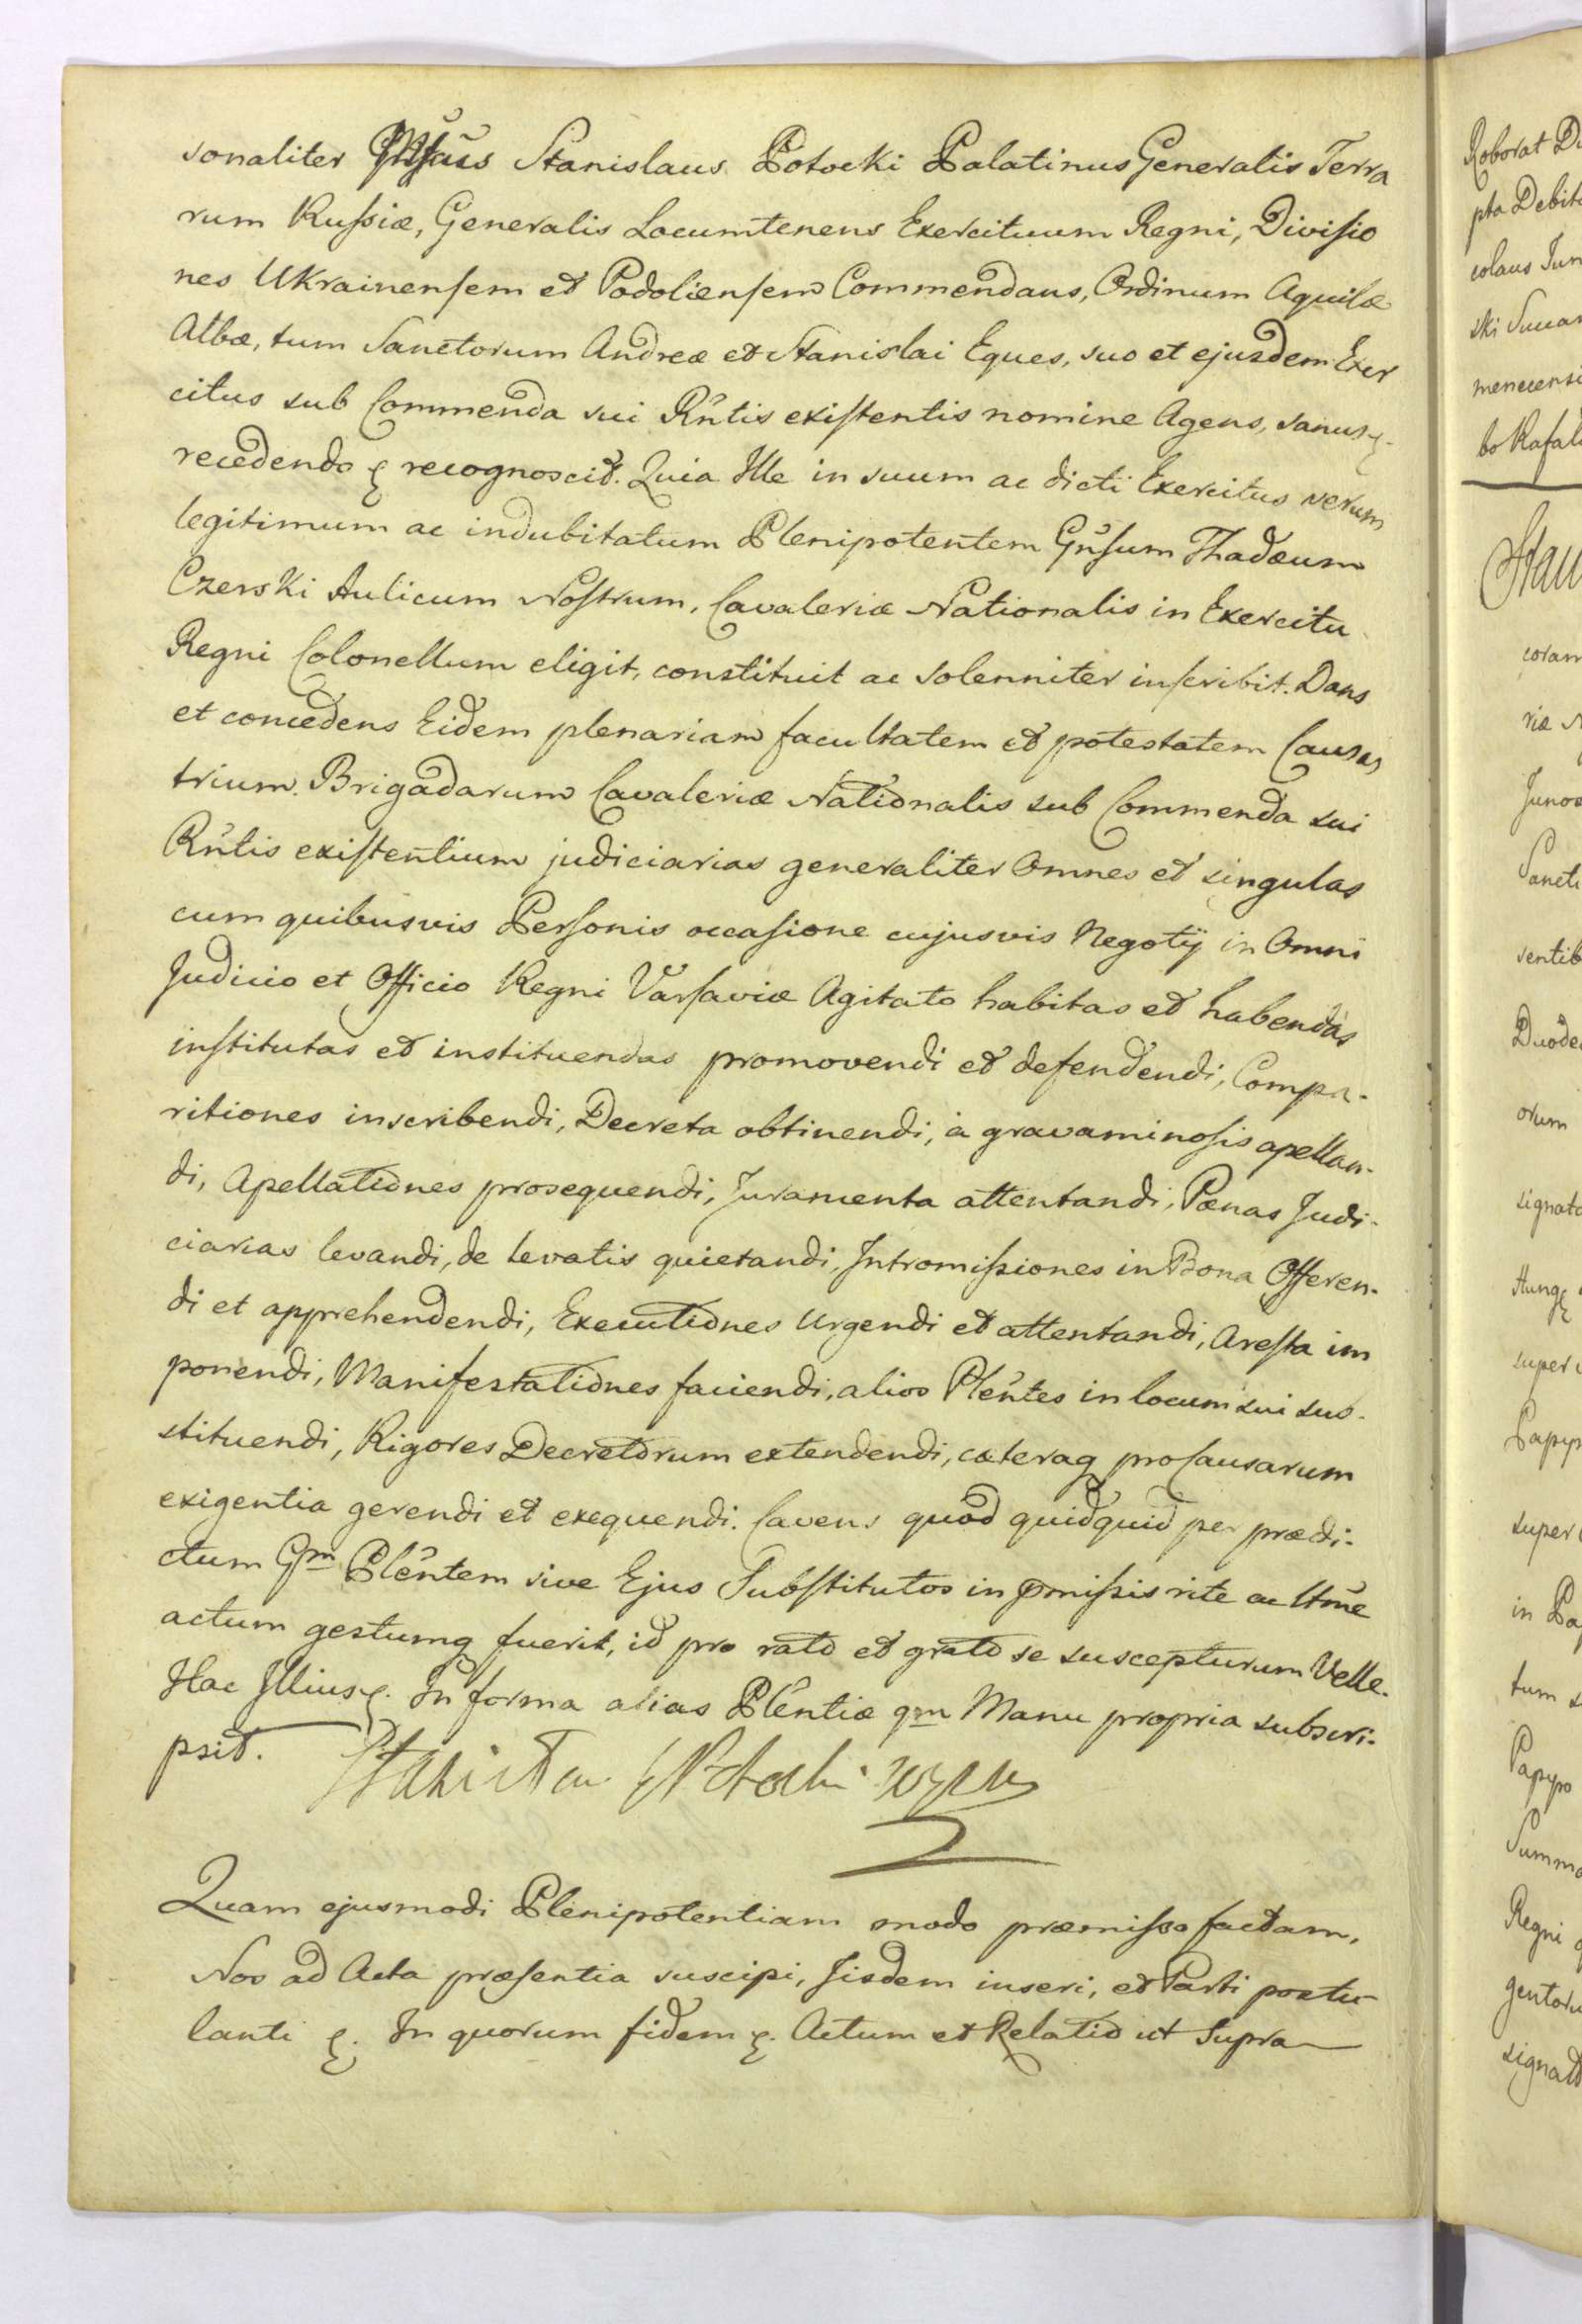 sonaliter Stanislaus Potocki Palatinus Generalis Terra
rum Russiæ, Generalis Locumtenens Exercituum Regni, Divisio
nes Ukrainensem et Podoliensem Commendans, Ordinum Aquilæ
Albæ, tum Sanctorum Andreæ et Stanislai Eques, suo et ejusdem Exer
citus sub Commenda sui Rñtis existentis nomine Agens, sanus
recedendo recognoscit. Quia Ille in suum ac dicti Exercitus verum
legitimum ac indubitatum Plenipotentem Gñsum Thadæum
Czerski Aulicum Nostrum, Cavaleriæ Nationalis in Exercitu
Regni Colonellum eligit, constituit ac solenniter inscribit. Dans
et concedens Eidem plenariam facultatem et potestatem Causas
trium Brigadarum Cavaleriæ Nationalis sub Commenda sui
Rñtis existentium judiciarias generaliter Omnes et singulas
cum quibusvis Personis occasione cujusvis Negotÿ in Omni
Judicio et Officio Regni Varsaviæ Agitato habitas et habendas
institutas et instituendas promovendi et defendendi, Compa-
ritiones inscribendi, Decreta obtinendi, à gravaminosis apellan-
di, Apellationes prosequendi, Juramenta attentandi, Pænas Judi-
ciarias levandi, de levatis quietandi, Intromissiones in Bona Offeren-
di et apprehendendi, Executiones Urgendi et attentandi, Aresta im
ponendi, Manifestationes faciendi, alios Plêntes in locum sui sus-
stituendi, Rigores Decretorum extendendi, cæteraq pro Causarum
exigentia gerendi et exequendi. Cavens quod quidquid per prædi-
ctum Gm Plêntem sive Ejus Substitutos in pmissis rite ac ltme
actum gestumq fuerit, id pro rato et grato se suscepturum Velle.
Hac Illius. In forma alias Plêntiæ qm Manu propria subscri-
psit. Stanisław Potocki
Quam ejusmodi Plenipotentiam modo præmisso factam,
Nos ad Acta præsentia suscipi, Iisdem inseri, et Parti postu-
lanti. In quorum fidem. Actum et Relatio ut Supra
Roborat
pta Debit
colaus Jun
ski
bo Rafal
coram
riæ
Sancti
sentib
orum
signato
super
super
in
tum
Papyro
Regni